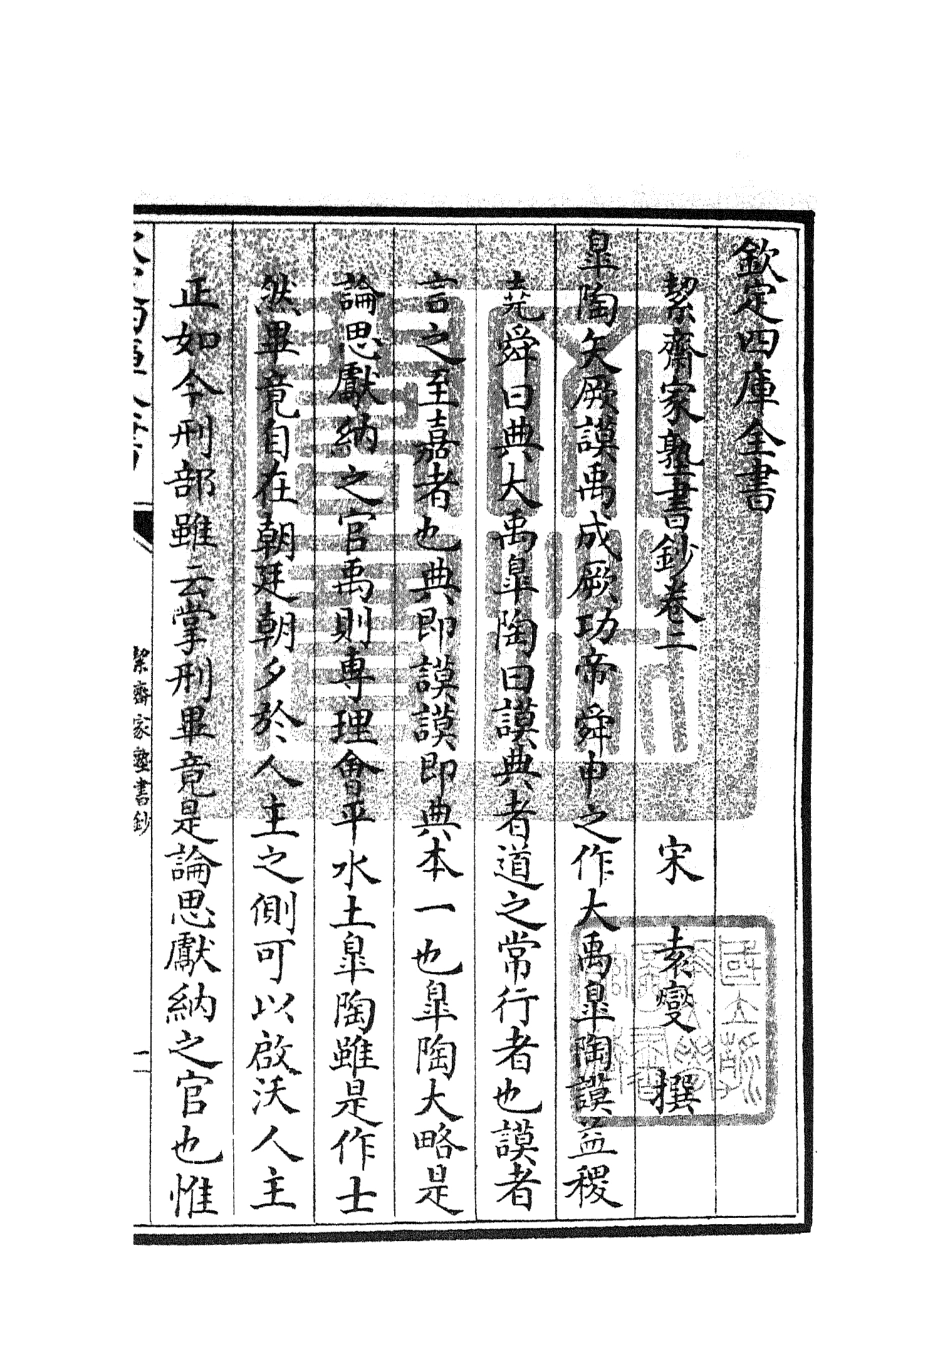 欽定四庫全書
絜齋家塾書鈔卷二
宋 袁燮 撰
臯陶矢厥謨禹成厥功帝舜申之作大禹臯陶謨益稷
堯舜曰典大禹臯陶曰謨典者道之常行者也謨者
言之至嘉者也典即謨謨即典本一也臯陶大略是
論思獻納之官禹則專理會平水土臯陶雖是作士
然畢竟自在朝廷朝夕於人主之側可以啟沃人主
正如今刑部雖云掌刑畢竟是論思獻納之官也惟
絜齋家塾書鈔
一